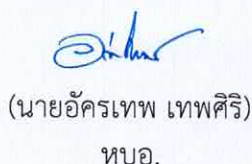 (นายอัครเทพ เทพศิริ)
หบอ.